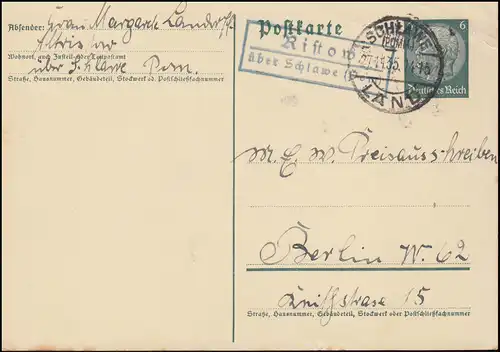 Absender: Frau Margarete
über Schlawe Pom.
Wohnort, auch Zustell- oder Leitpostamt
Straße, Hausnummer, Gebäudeteil, Stockwerk od. Postschließfachnummer
Postkarte
Ristow
über Schlawe
SCHLAWE
(POMM)
LAND
6
Deutsches Reich
M. E. W. Preisausschreiben
Berlin W. 62
Keithstrase 15
Straße, Hausnummer, Gebäudeteil, Stockwerk oder Postschließfachnummer